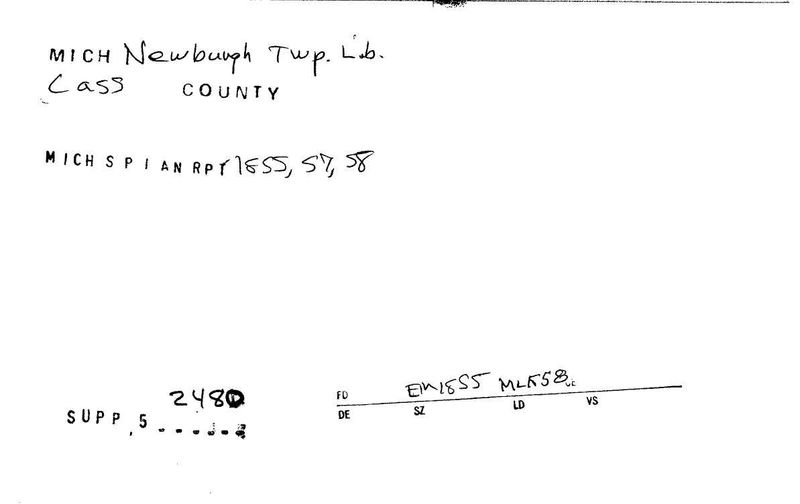 MICH Newburgh Twp. Lib.
Cass COUNTY
MICH S P I AN RPT 1855, 57, 58
2480
SUPP, 5
FD EM1855 MLF58
DE SZ LD VS